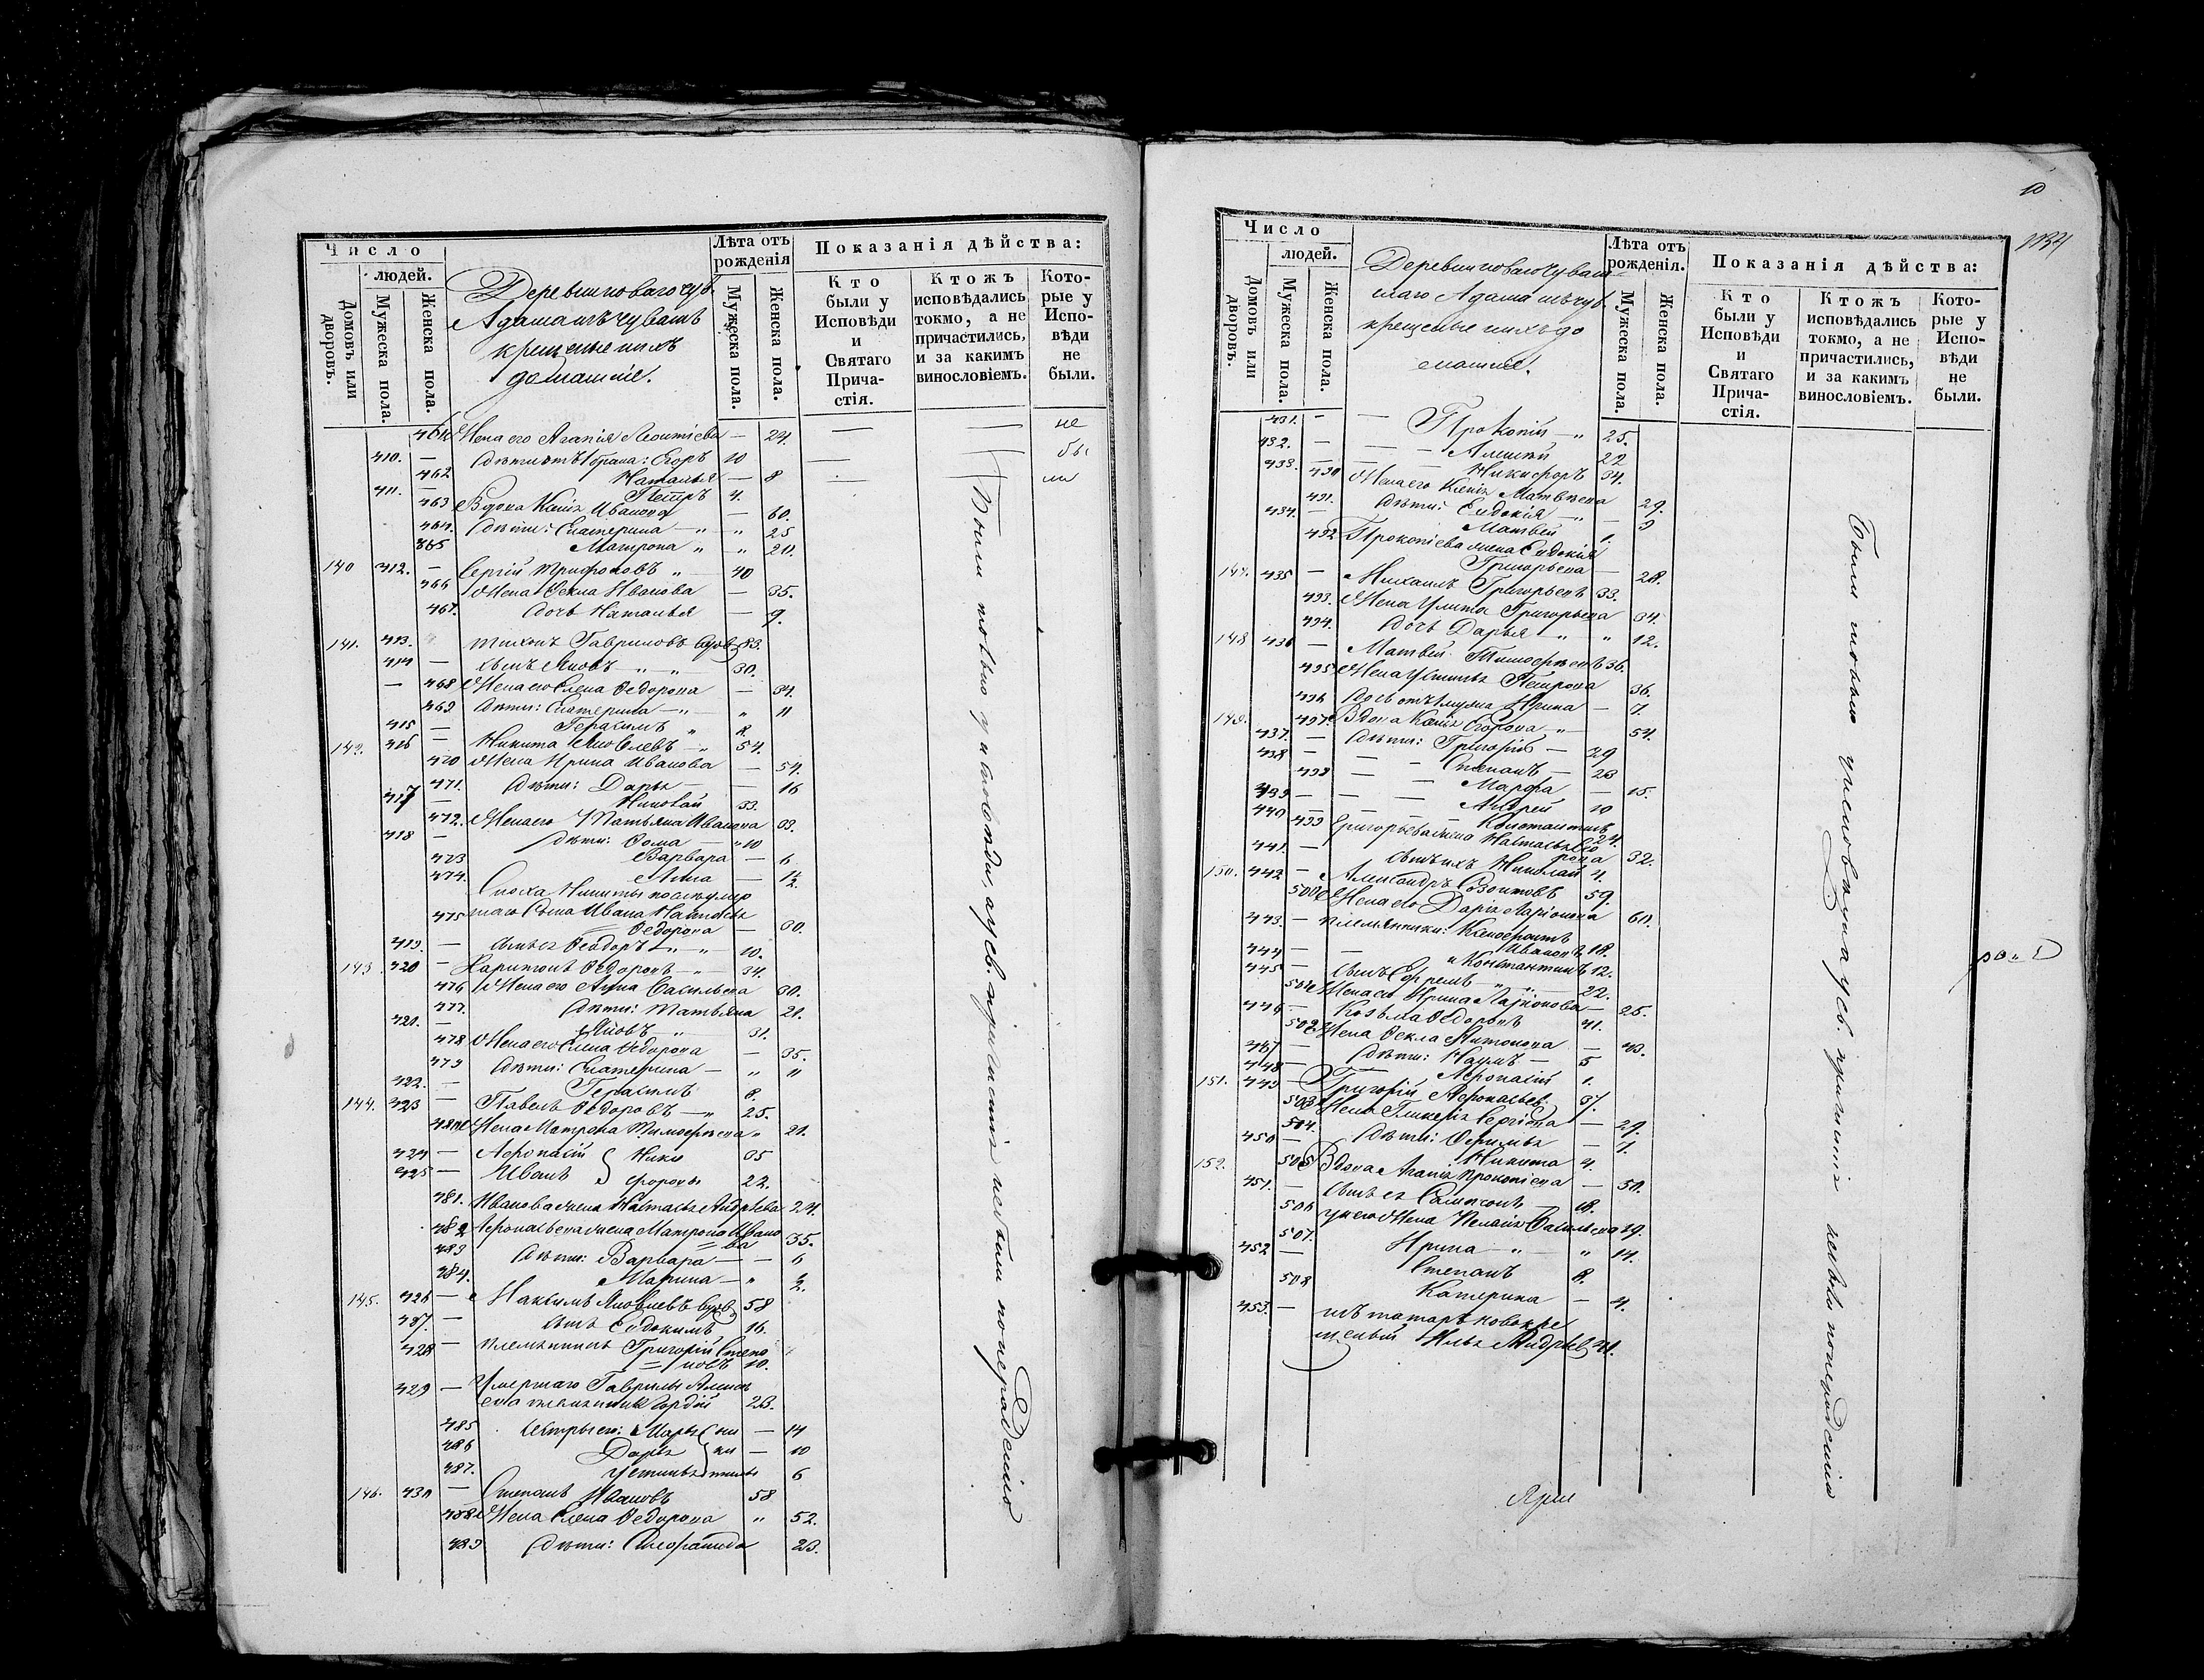 Число
людей.
Домовъ или дворовъ.
Мужеска пола.
Женска пола.
Деревни новаго чув.
Адамашъ чуваш
крещеные ихъ
домашніе.
Лѣта отъ рожденія
Мужеска пола.
Женска пола.
Показанія дѣйства:
Кто были у Исповѣди и Святаго Причастія.
Ктожъ исповѣдались токмо, а не причастились, и за какимъ винословіемъ.
Которые у Исповѣди не были.
Жена его Агапія Леонтіева — 24.
410. — Дѣти: Егоръ 10
462 Наталья — 8
411. — Петръ 4.
463 Вдова Ксенія Иванова — 60.
464. Дѣти: Екатерина — " " 25
Матрона " " 20.
140 412. — Сергій Трифоновъ " 40
466 Жена Фекла Иванова — 35.
467. Дочь Наталья — 9.
141. 413. Тихонъ Гавриловъ вдов 83.
414 — сынъ Яковъ " " 30.
468 Жена его Елена Федорова — 34.
469 Дѣти: Екатерина — " " 11
415 — Герасимъ " 8.
142. 416 — Никита Яковлевъ — " 54.
470 Жена Ирина Иванова — 54.
471. Дѣти: Дарья — 16
417 — Николай 33.
472. Жена его Татьяна Иванова 33.
418 — Дѣти: Фома — " 10
473 Варвара — 6
474. Анна —
Сноха Никиты
475 сына Ивана Наталья
Федорова —
419. — сынъ ея Феодоръ — " " 10.
143 420 — Харитонъ Федоровъ — " 34.
476 Жена его Анна Васильева 30.
477. Дѣти: Татьяна 21.
421. — Яковъ — " 31.
478 Жена его Елена Федорова — 35.
479 Дѣти: Екатерина — " 11
422. — Герасимъ 8.
144. 423 — Павелъ Федоровъ — " 25.
480 Жена Матрона Тимофеева " 21.
424 — Афонасій } Ники 35
425 — Иванъ } форовы 22.
481. Иванова жена Наталья Андреева 24.
482 Афонасьева жена Матрона Ивано
= ва 35.
483 Дѣти: Варвара — — 6
484. Марина — " 2.
145. 426 — Максимъ Яковлевъ вдов 58
427. — сынъ Евдокимъ 16.
428 — племянникъ Григорій Степа
= новъ 10.
429 — Умершаго Гаврилы Алекс
Гордій 23.
485 Сестры его: Марья — 14
486 Дарья — 10
487. Устинья 6
146. 430 — Степанъ Ивановъ 58
488 Жена Елена Федорова " 52.
489 Дѣти: 23.
не
бы
ли
Были токмо у исповѣди, а у св. причастія не были по нерадѣнію
10
1134
Число
людей.
Домовъ или дворовъ.
Мужеска пола.
Женска пола.
Деревни новаго чуваш
скаго Адамашъ чув.
крещеные ихъ до
машніе.
Лѣта отъ рожденія.
Мужеска пола.
Женска пола.
Показанія дѣйства:
Кто были у Исповѣди и Святаго Причастія.
Ктожъ исповѣдались токмо, а не причастились, и за какимъ винословіемъ.
Которые у Исповѣди не были.
431. — — Прокопій — " 25.
432. — — — Алексѣй 22
433. — — Никифоръ 34.
490 Жена его Ксенія Матвеева 29.
491. Дѣти: Евдокія — " — 3
434. — Матвей 1.
492 Прокопіева жена Евдокія
Григорьева — 28.
147. 435 — Михаилъ Григорьевъ 33.
493. Жена Улита Григорьева 34.
494. Дочь Дарья " " 12.
148 436 — Матвей Тимофеевъ 36.
495 Жена Устинья Петрова 36.
496 Дочь отъ 1 мужа Ирина — 7.
149. 497. Вдова Ксенія Егорова " — 54.
437. — Дѣти: Григорій — 29
438 — — Степанъ — 23
498 — — Марфа — 15.
439 — — — Андрей 10
440 — — — Константинъ
499 Григорьева жена Наталья 24.
441. — сынъ ихъ Николай 4.
150. 442 — Александръ Созонтовъ 59.
500 Жена его Дарія Ларіонова 60.
443. — племянники: Ксенофонтъ
Ивановъ 18.
444 — — и Константинъ 12.
445 — сынъ Ефремъ " " 22.
501 Жена его Ирина Ларіонова — 25.
446 — Козьма Федоровъ 41.
502 Жена Фекла Антонова — 43.
447 — Дѣти: Наумъ — 5
448 — Афонасій 1.
151. 449 — Григорій Афонасьев. 37.
503 Жена Гликерія Сергіева — 29.
504. Дѣти: Офимья — 1.
450 — Никита 4.
152. 505 Вдова Агапія Прокопіева — 50.
451. — сынъ ея Самсонъ — 18.
506 у него Жена Пелагія Васильева 19.
507. Ирина — " — " 14.
452 — Степанъ 8.
508 Катерина — 4.
453. — изъ татаръ новокре
щеный Илья Андреев 41.
Были токмо у исповѣди а у св. причастія не были по нерадѣнію